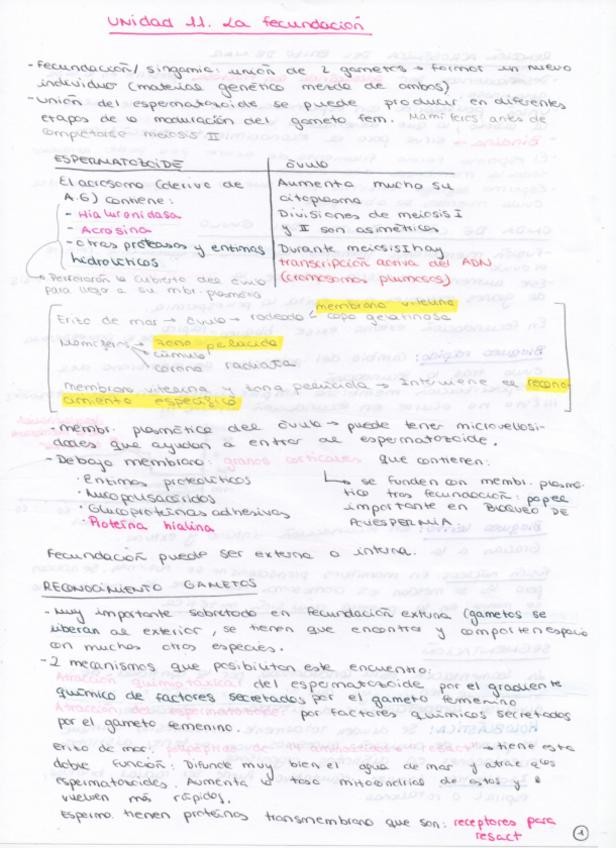 Unidad 11. La fecundación
- Fecundación/ singamia: unión de 2 gametos → formar un nuevo
individuo (material genético mezcla de ambos)
- Unión del espermatozoide se puede producir en diferentes
etapas de la maduración del gameto fem. Mamíferos: antes de
completarse meiosis II
ESPERMATOZOIDE
ÓVULO
El acrosoma (deriva de
A.G) contiene:
- Hialuronidasa
- Acrosina
- Otras proteasas y enzimas
hidrolíticos
→ Perforarán la cubierta del óvulo
para llegar a su mbr. plasmática
Aumenta mucho su
citoplasma
Divisiones de meiosis I
y II son asimétricas
Durante meiosis I hay
transcripción activa del ADN
(cromosomas plumosos)
membrana vitelina
Erizo de mar → óvulo → rodeado capa gelatinosa
Mamíferos → zona pelúcida
cúmulo
corona radiata
membrana vitelina y zona pelúcida → Interviene en recono-
cimiento específico
- membr. plasmática del óvulo → puede tener microvellosi-
dades que ayudan a entrar al espermatozoide.
- Debajo membrana: granos corticales que contienen:
· Enzimas proteolíticos
· Mucopolisacáridos
· Glucoproteínas adhesivas
· Proteína hialina
→ se funden con membr. plasmá-
tica tras fecundación: papel
importante en BLOQUEO DE
POLIESPERMIA.
Fecundación puede ser externa o interna.
RECONOCIMIENTO GAMETOS
- Muy importante sobretodo en fecundación externa (gametos se
liberan al exterior, se tienen que encontrar y comparten espacio
con muchas otras especies.
- 2 mecanismos que posibilitan este encuentro:
Atracción quimiotáxica: del espermatozoide por el gradiente
químico de factores secretados por el gameto femenino
Atracción del espermatozoide: por factores químicos secretados
por el gameto femenino.
erizo de mar: de aminoácidos "resact" → tiene esta
doble función: Difunde muy bien el agua de mar y atrae a los
espermatozoides. Aumenta la tasa mitocondrial de estos y se
vuelven más rápidos.
Espermo. tienen proteínas transmembrana que son: receptores para
resact
1